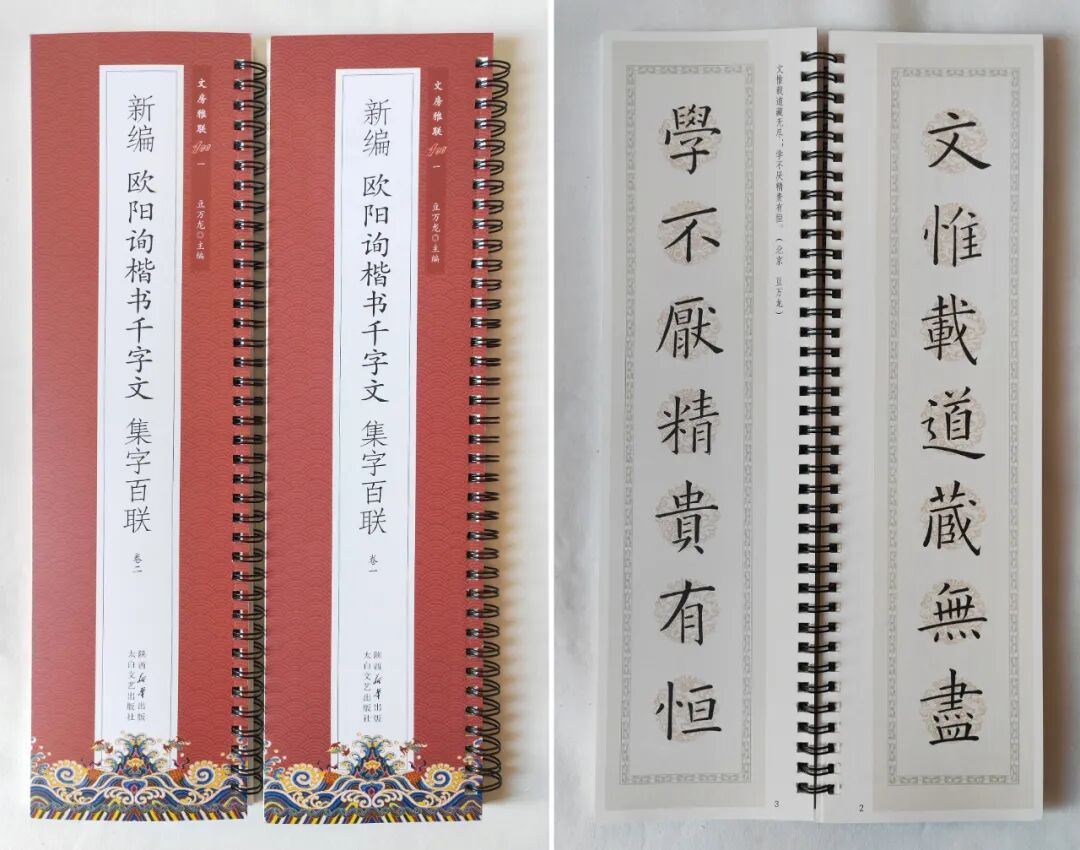 文房雅联 一 豆万龙◎主编
新编 欧阳询楷书千字文 集字百联 卷二
陕西新华出版
太白文艺出版社
文房雅联 一 豆万龙◎主编
新编 欧阳询楷书千字文 集字百联 卷一
陕西新华出版
太白文艺出版社
文惟載道藏無盡
2
文惟载道藏无尽；学不厌精贵有恒。（北京 豆万龙）
學不厭精貴有恒
3